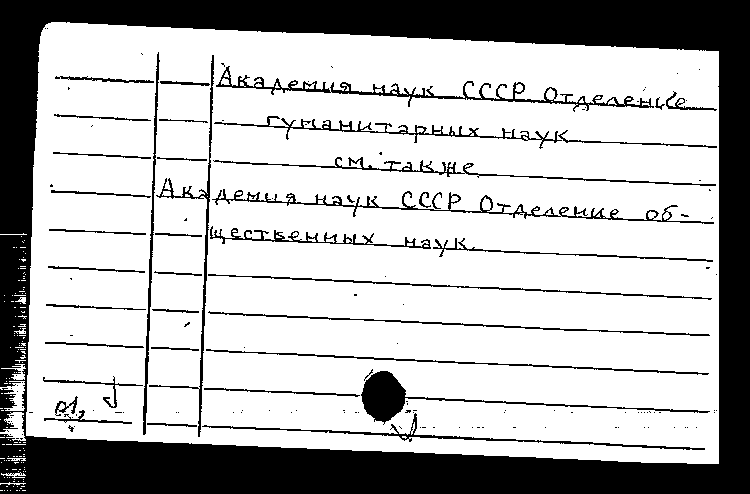 Академия наук СССР Отделение
гуманитарных наук
см. также
Академия наук СССР Отделение об-
щественных наук.